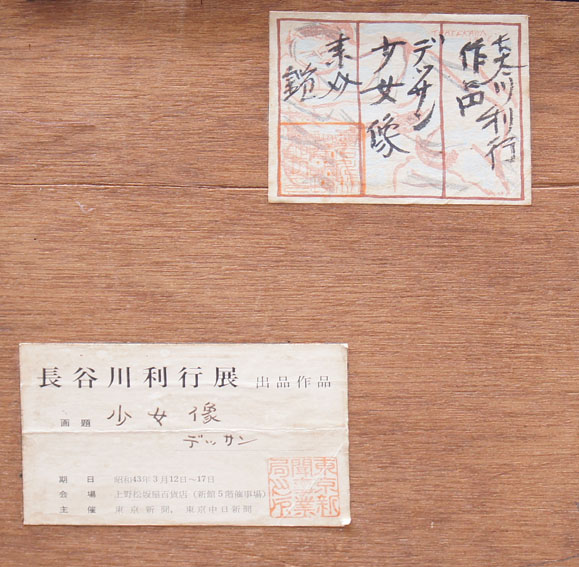 長谷川利行
作品
デッサン
少女像
長谷川利行展 出品作品
画題 少女像
デッサン
期日 昭和43年3月12日〜17日
会場 上野松坂屋百貨店（新館5階催事場）
主催 東京新聞、東京中日新聞
東京新
聞事業
局之印